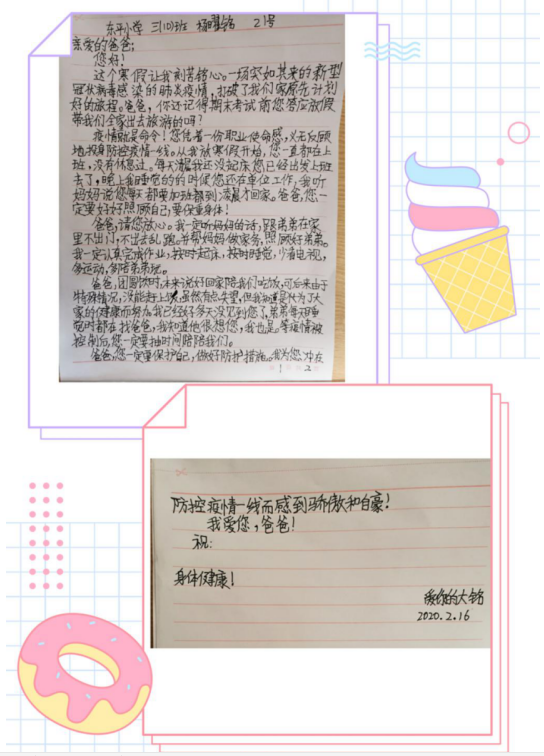 东平小学 三(10)班 杨 铭 21号
亲爱的爸爸:
您好!
这个寒假让我刻苦铭心。一场突如其来的新型
冠状病毒感染的肺炎疫情,打破了我们家原先计划
好的旅程。爸爸,你还记得期末考试前您答应放假
带我们全家出去旅游的吗?
疫情就是命令!您凭着一份职业使命感,义无反顾
地投身防控疫情一线。从我放寒假开始,您一直都在上
班,没有休息过。每天醒我还没起床您已经出发上班
去了,晚上我睡觉的的时候您还在单位工作,我听
妈妈说您每天都要加班都到凌晨才回家。爸爸,您一
定要好好照顾自己,要保重身体!
爸爸,请您放心。我一定听妈妈的话,跟弟弟在家
里不出门,不出去乱跑。并帮妈妈做家务,照顾好弟弟。
我一定认真完成作业,按时起床,按时睡觉,少看电视,
多运动,多陪弟弟玩。
爸爸,团圆饭时,本来说好回家陪我们吃饭,可后来由于
特殊情况,没能赶上,虽然有点失望,但我知道是忙为了大
家的健康而努力。我已经好多天没见到您了,弟弟每天睡
觉时都在找爸爸,我知道他很想您,我也是。等疫情被
控制后,您一定要抽时间陪陪我们。
爸爸,您一定要保护自己,做好防护措施。我为您冲在
1 2
防控疫情一线而感到骄傲和自豪!
我爱您,爸爸!
祝:
身体健康!
爱你的大铭
2020.2.16